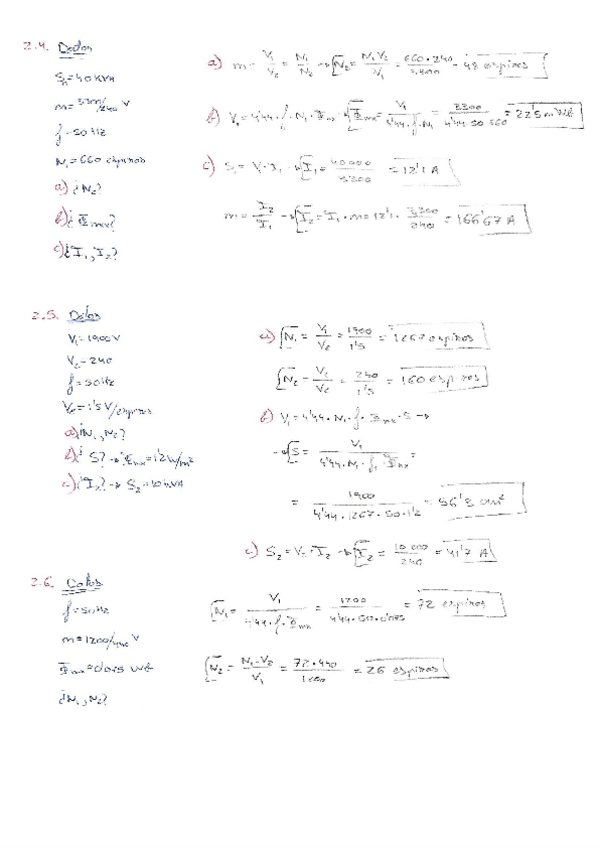 2.4. Datos
Sn=40KVA
m=3300/240 V
f=50Hz
N1=660 espiras
a) ¿N2?
b) ¿Φmx?
c) ¿I1, I2?
a) m = V1/V2 = N1/N2 → N2 = N1·V2/V1 = 660·240/3300 = 48 espiras
b) V1 = 4'44·f·N1·Φmx → Φmx = V1/4'44·f·N1 = 3300/4'44·50·660 = 22'5mWb
c) S1 = V·I1 → I1 = 40000/3300 = 12'1 A
m = I2/I1 → I2 = I1·m = 12'1· 3300/240 = 166'67 A
2.5. Datos
V1=1900V
V2=240
f=50Hz
Ve=1'5 V/espiras
a) ¿N1, N2?
b) ¿S? →
c) ¿I2? → S2=10KVA
a) N1 = V1/Ve = 1900/1'5 = 1267 espiras
N2 = V2/Ve = 240/1'5 = 160 espiras
b) V1=4'44·N1·f·Φmx·S →
→ S = V1/4'44·N1·f·Φmx =
= 1900/4'44·1267·50·1'2 = 56'3 cm²
c) S2=V2·I2 → I2 = 10000/240 = 41'7 A
2.6. Datos
f=50Hz
m=1200/440 V
Φmx=0'075 Wb
¿N1, N2?
N1 = V1/4'44·f·Φmx = 1200/4'44·50·0'075 = 72 espiras
N2 = N1·V2/V1 = 72·440/1200 = 26 espiras